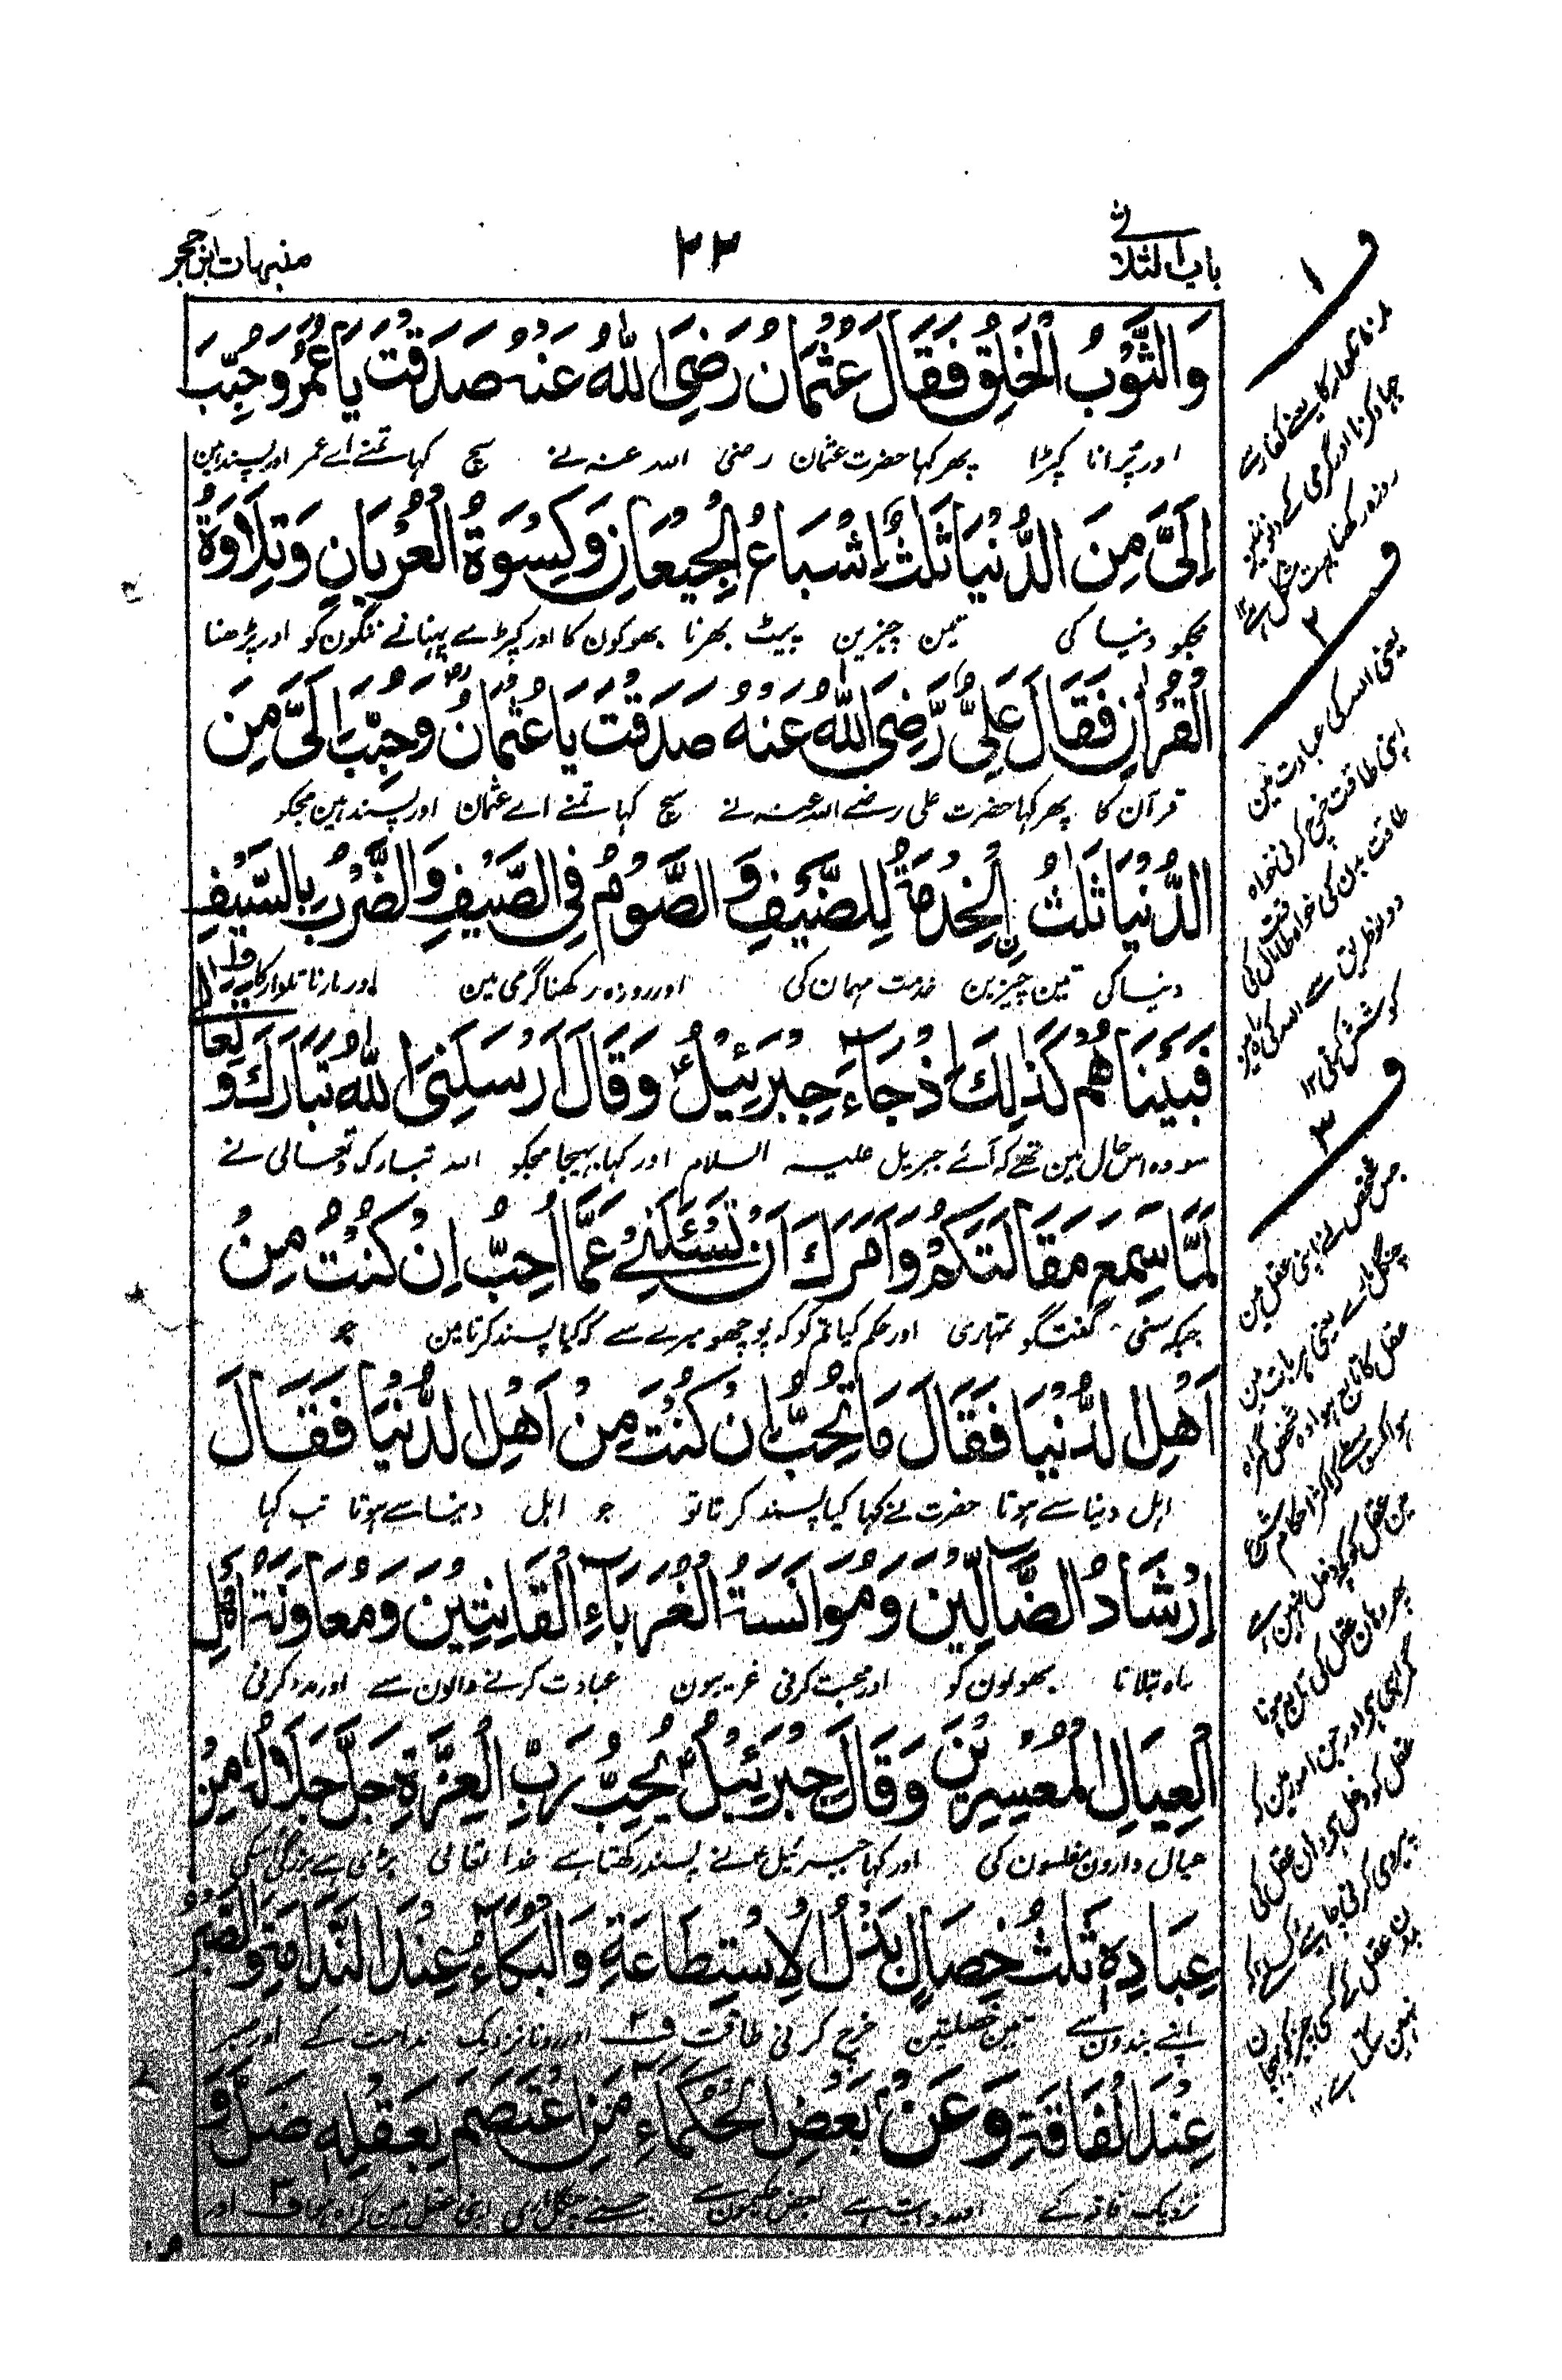 باب الثلاثے
۲۳
منبہات ابن حجر
وَالثَّوْبُ الْخَلِقُ فَقَالَ عُثْمَانُ رَضِيَ اللّٰهُ عَنْهُ صَدَقْتَ يَا عُمَرُ وَحُبِّبَ
اور پُرانا کپڑا پھر کہا حضرت عثمان رضی اللہ عنہ نے سچ کہا تمنے اے عمر اور پسند ہین
اِلَيَّ مِنَ الدُّنْيَا ثَلٰثٌ اِشْبَاعُ الْجِيْعَانِ وَكِسْوَةُ الْعُرْيَانِ وَتِلَاوَةُ
مجکو دنیا کی تین چیزین پیٹ بھرنا بھوکون کا اور کپڑے پہنانے ننگون کو اور پڑھنا
الْقُرْاٰنِ فَقَالَ عَلِيٌّ رَّضِيَ اللّٰهُ عَنْهُ صَدَقْتَ يَا عُثْمَانُ وَحُبِّبَ اِلَيَّ مِنَ
قرآن کا پھر کہا حضرت علی رضے اللہ عنہ نے سچ کہا تمنے اے عثمان اور پسند ہین مجکو
الدُّنْيَا ثَلٰثٌ الْخِدْمَةُ لِلضَّيْفِ وَ الصَّوْمُ فِي الصَّيْفِ وَالضَّرْبُ بِالسَّيْفِ
دنیا کی تین چیزین خدمت مہمان کی اور روزہ رکھنا گرمی مین اور مارنا تلوار کا ف۱
فَبَيْنَا هُمْ كَذٰلِكَ اِذْ جَاءَ جِبْرَئِيْلُ وَقَالَ اَرْسَلَنِيَ اللّٰهُ تَبَارَكَ وَ تَعَالٰى
سو وہ اس حال مین تھے کہ آئے جبریل علیہ السلام اور کہا بہیجا مجکو اللہ تبارک و تعالی نے
لَمَّا سَمِعَ مَقَالَتَكُمْ وَاَمَرَكَ اَنْ تَسْئَلَنِيْ عَمَّا اُحِبُّ اِنْ كُنْتُ مِنْ
جبکہ سنی گفتگو تمہاری اور حکم کیا تم کو کہ پوچھو میرے سے کہ کیا پسند کرتا مین جو
اَهْلِ الدُّنْيَا فَقَالَ مَا تُحِبُّ اِنْ كُنْتَ مِنْ اَهْلِ الدُّنْيَا فَقَالَ
اہل دنیا سے ہوتا حضرت نے کہا کیا پسند کرتا تو جو اہل دنیا سے ہوتا تب کہا
اِرْشَادُ الضَّالِّيْنَ وَمُوَانَسَةُ الْغُرَبَاءِ الْقَانِتِيْنَ وَمُعَاوَنَةُ اَهْلِ
راہ بتلانا بھولون کو اور محبت کرنی غریبون عبادت کرنے والون سے اور مدد کرنی
الْعِيَالِ الْمُعْسِرِيْنَ وَقَالَ جِبْرَئِيْلُ يُحِبُّ رَبُّ الْعِزَّةِ جَلَّ جَلَالُهٗ مِنْ
عیال دارون مفلسون کی اور کہا جبرئیل نے پسند رکھتا ہے خدا تعالی بڑی ہے بزرگی اسکی
عِبَادِهٖ ثَلٰثَ خِصَالٍ بَذْلُ الْاِسْتِطَاعَةِ وَالْبُكَاءُ عِنْدَ النَّدَامَةِ وَالصَّبْرُ
اپنے بندون سے تین خصلتین خرچ کرنی طاقت ف۲ اور رونا نزدیک ندامت کے اور صبر
عِنْدَ الْفَاقَةِ وَعَنْ بَعْضِ الْحُكَمَاءِ مَنِ اعْتَصَمَ بِعَقْلِهٖ ضَلَّ وَ
نزدیک فاقہ کے اور روایت ہے بعض حکیمون سے جسنے چنگل ماری اپنی عقل مین گمراہ ہوا ف۳ اور
ف۱
مارنا تلوار کا یعنے کفار سے
جہاد کرنا اور گرمی کے دنون مین
روزہ رکھنا بہت مشکل ہے ۱۲
ف۲
یعنی اللہ کی عبادت مین
اپنی طاقت خرچ کرنی خواہ
طاقت بدن کی خواہ طاقت مال کی
دونو طریق سے اللہ کی راہ مین
کوشش کرنی ۱۲
ف۳
جس شخص نے اپنی عقل مین
چنگل مارے یعنی ہر بات مین
عقل کا تابع ہوا وہ شخص گمراہ
ہوا کسواسطے کہ اکثر احکام شرع
مین عقل کو کچھ دخل نہین ہے
پھر وہان عقل کی تابع ہونا
گمراہی ہے اور جن امور مین کہ
عقل کو دخل ہے وہان عقل کی
پیروی کرنی چاہئے کس لئے کہ
بدون عقل کے کسی چیز کو پہچان
نہین سکتا ہے ۱۲